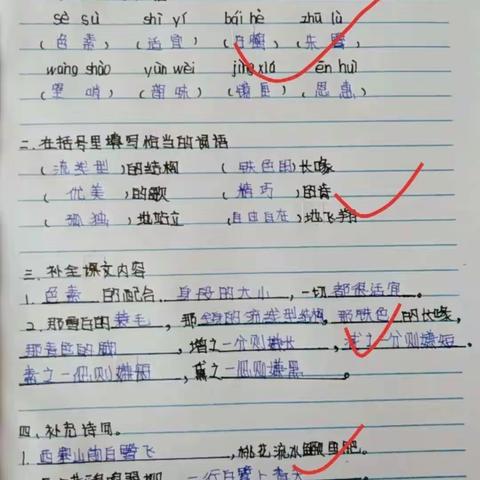 sè sù shì yí bái hè zhū lù
(色素)(适宜)(白鹤)(朱鹭)
wàng shào yùn wèi jìng xiá ēn huì
(望哨)(韵味)(镜匣)(恩惠)
二.在括号里填写恰当的词语
(流线型)的结构 (铁色的)长喙
(优美)的歌 (精巧)的
(孤独)地站立 (自由自在)地飞翔
三.补全课文内容
1. 色素 的配合, 身段的大小, 一切都很适宜。
2. 那雪白的蓑毛, 那全身的流线型结构, 那铁色的长喙,
那青色的脚, 增之一分则嫌长, 减之一分则嫌短,
素之一忽则嫌白, 黛之一忽则嫌黑。
四.补充诗词。
1. 西塞山前白鹭飞, 桃花流水鳜鱼肥。
一行白鹭上青天